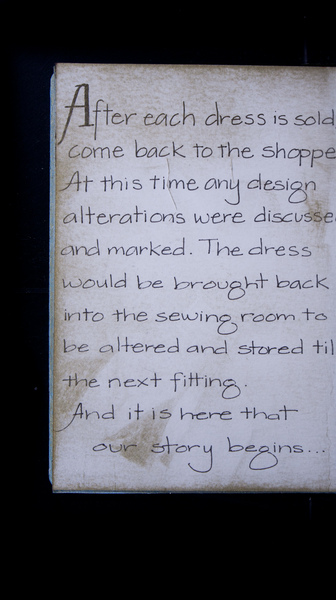 After each dress is sold
come back to the shoppe
At this time any design
alterations were discusse
and marked. The dress
would be brought back
into the sewing room to
be altered and stored til
the next fitting.
And it is here that
our story begins...